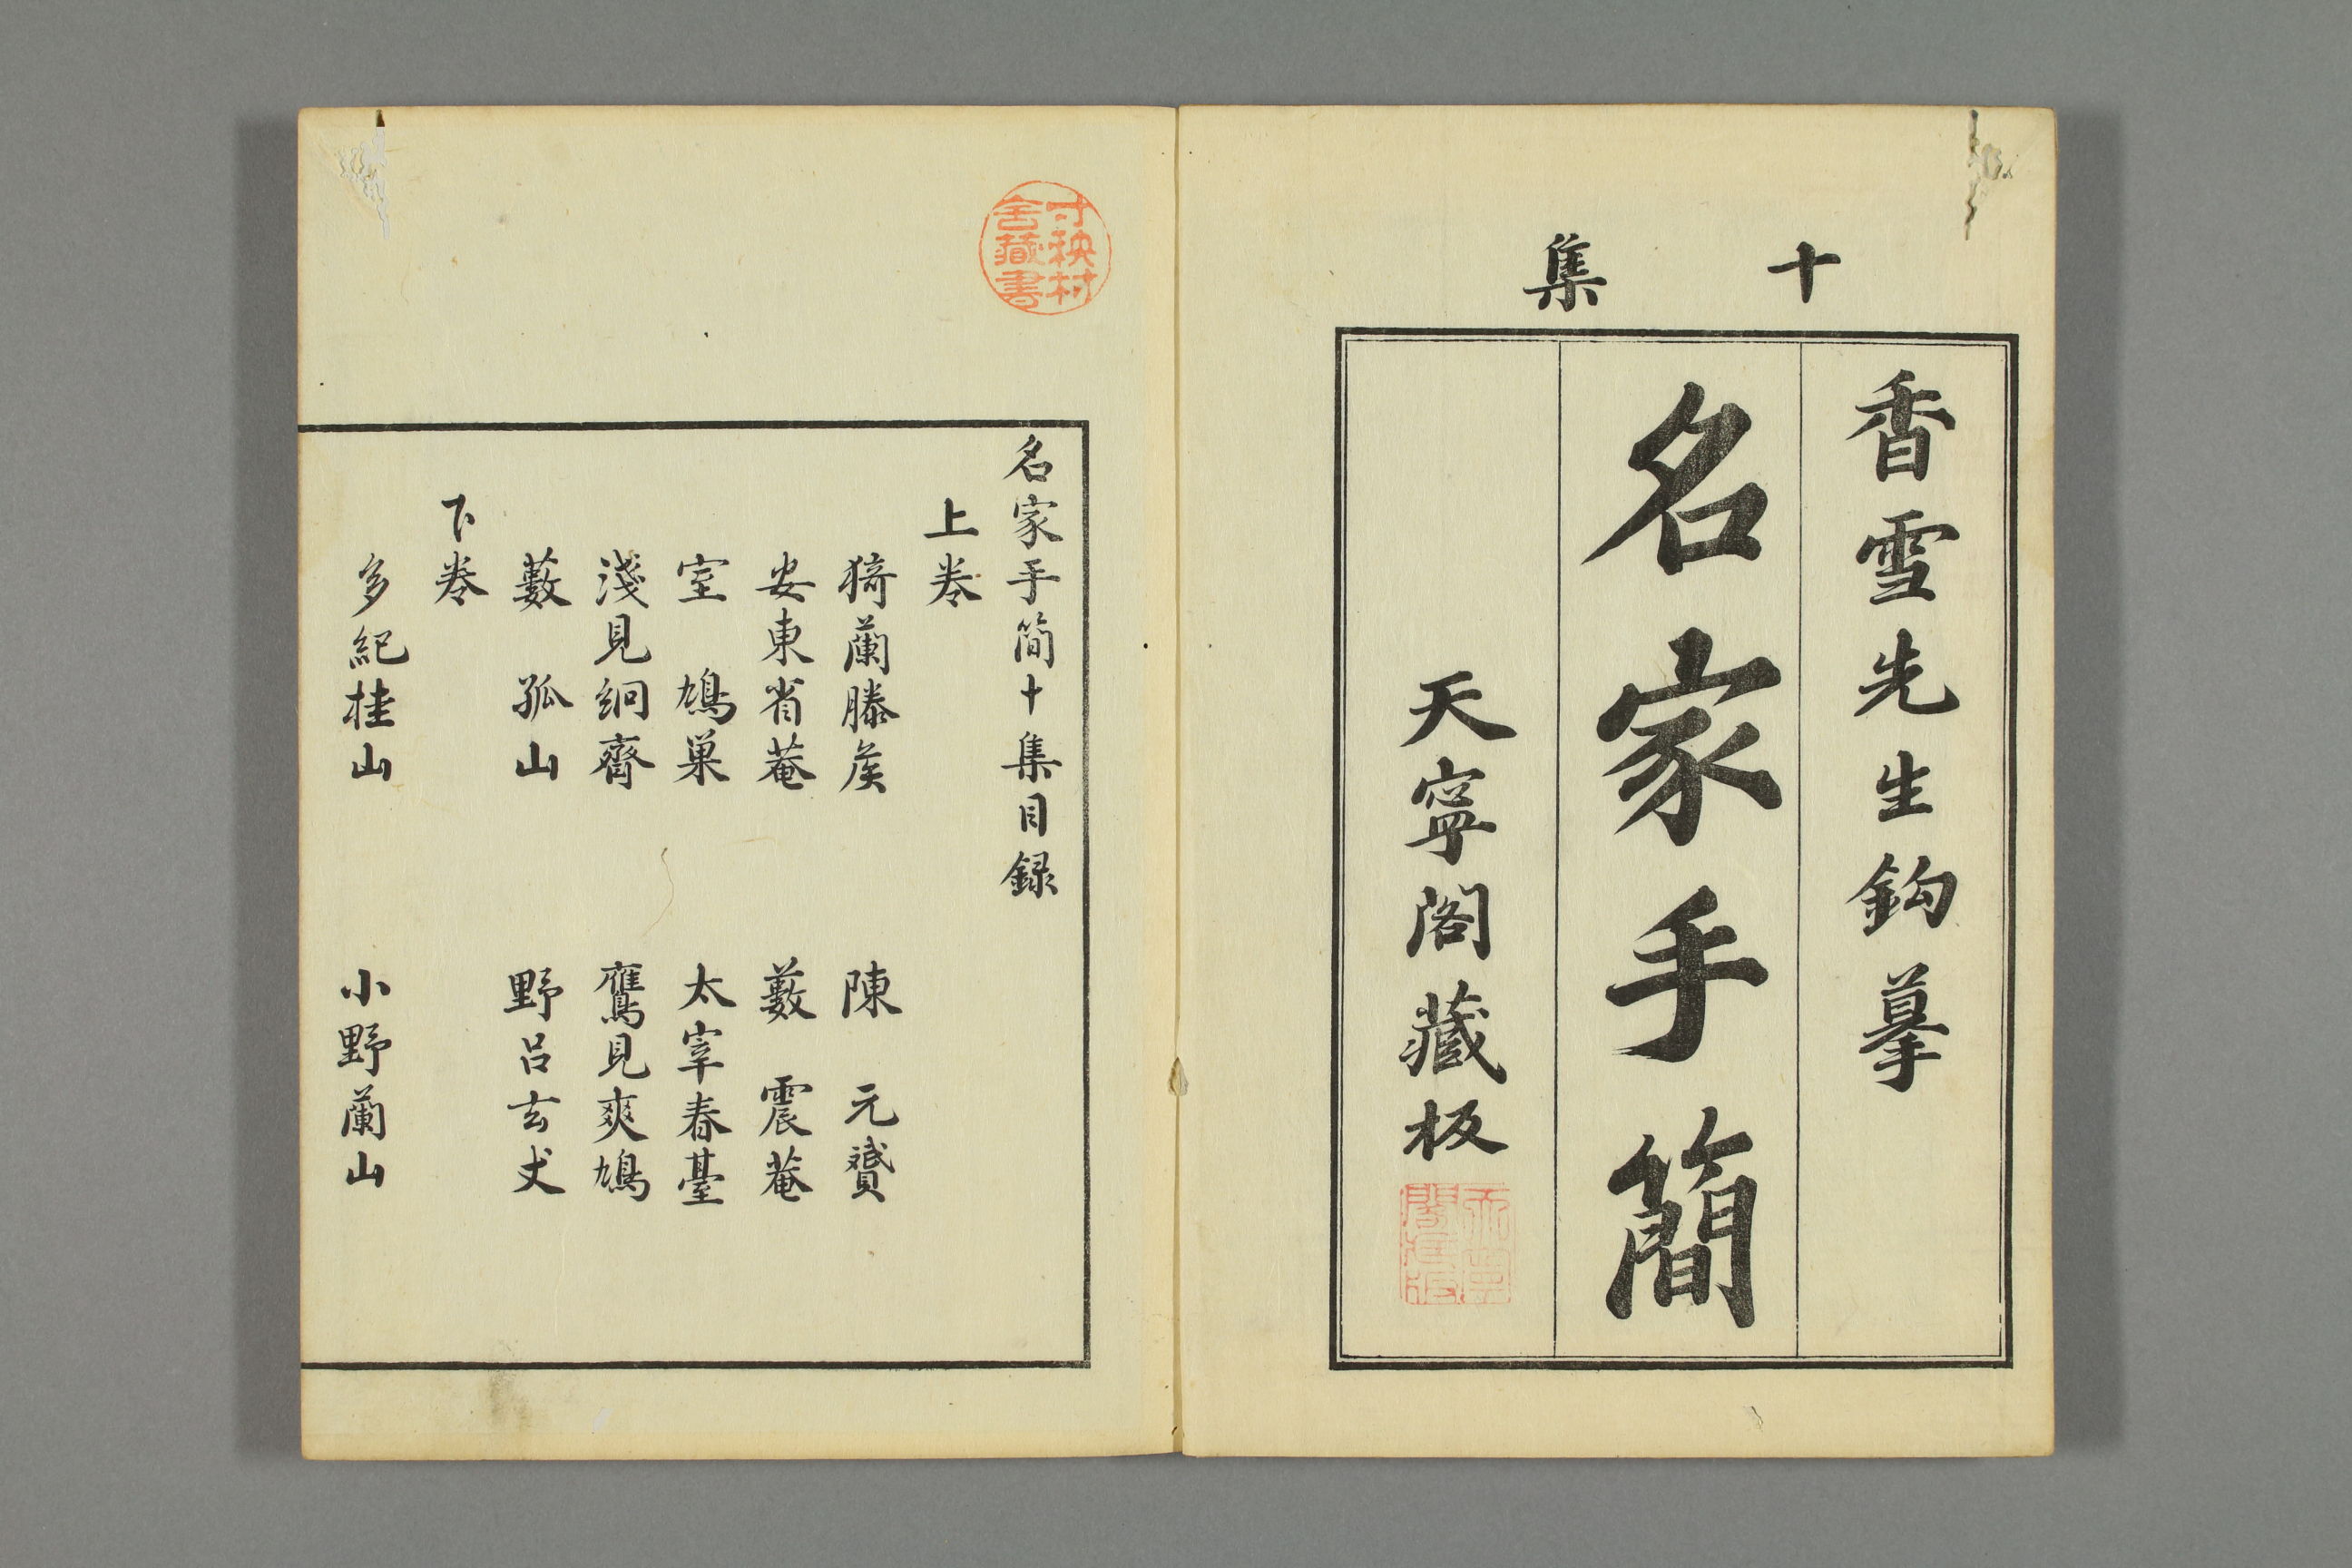 十集
香雪先生鈎摹
名家手簡
天寧閣藏板
寸秧村
舎藏書
名家手簡十集目録
上卷
猗蘭滕矦 陳元贇
安東省菴 藪震菴
室鳩巢 太宰春臺
淺見絅齊 鷹見爽鳩
藪孤山 野呂玄丈
下卷
多紀桂山 小野蘭山